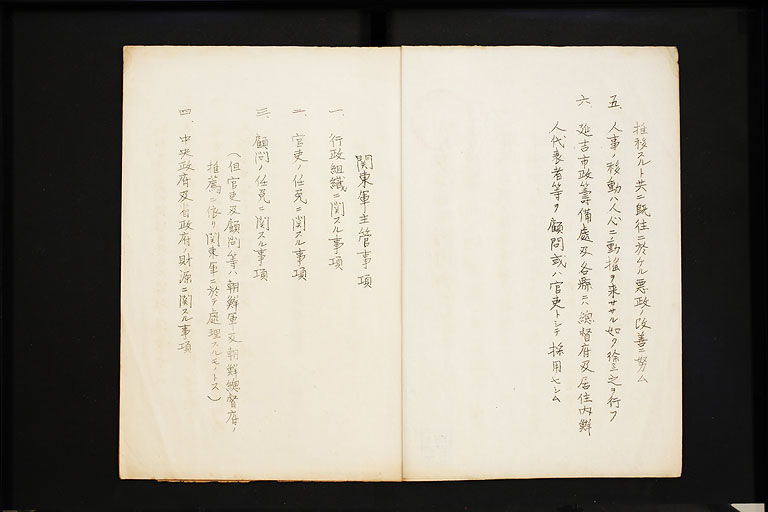 推移スルト共ニ既往ニ於ケル悪政ノ改善ニ努ム
五、人事ノ移動ハ人心ニ動揺ヲ来ササル如ク徐々ニ之ヲ行フ
六、延吉市政籌備處及各縣ニハ總督府及居住内鮮
人代表者等ヲ顧問或ハ官吏トシテ採用セシム
関東軍主管事項
一、行政組織ニ関スル事項
二、官吏ノ任免ニ関スル事項
三、顧問ノ任免ニ関スル事項
（但官吏及顧問等ハ朝鮮軍又朝鮮總督府ノ
推薦ニ依リ関東軍ニ於テ處理スルモノトス）
四、中央政府及省政府財源ニ関スル事項